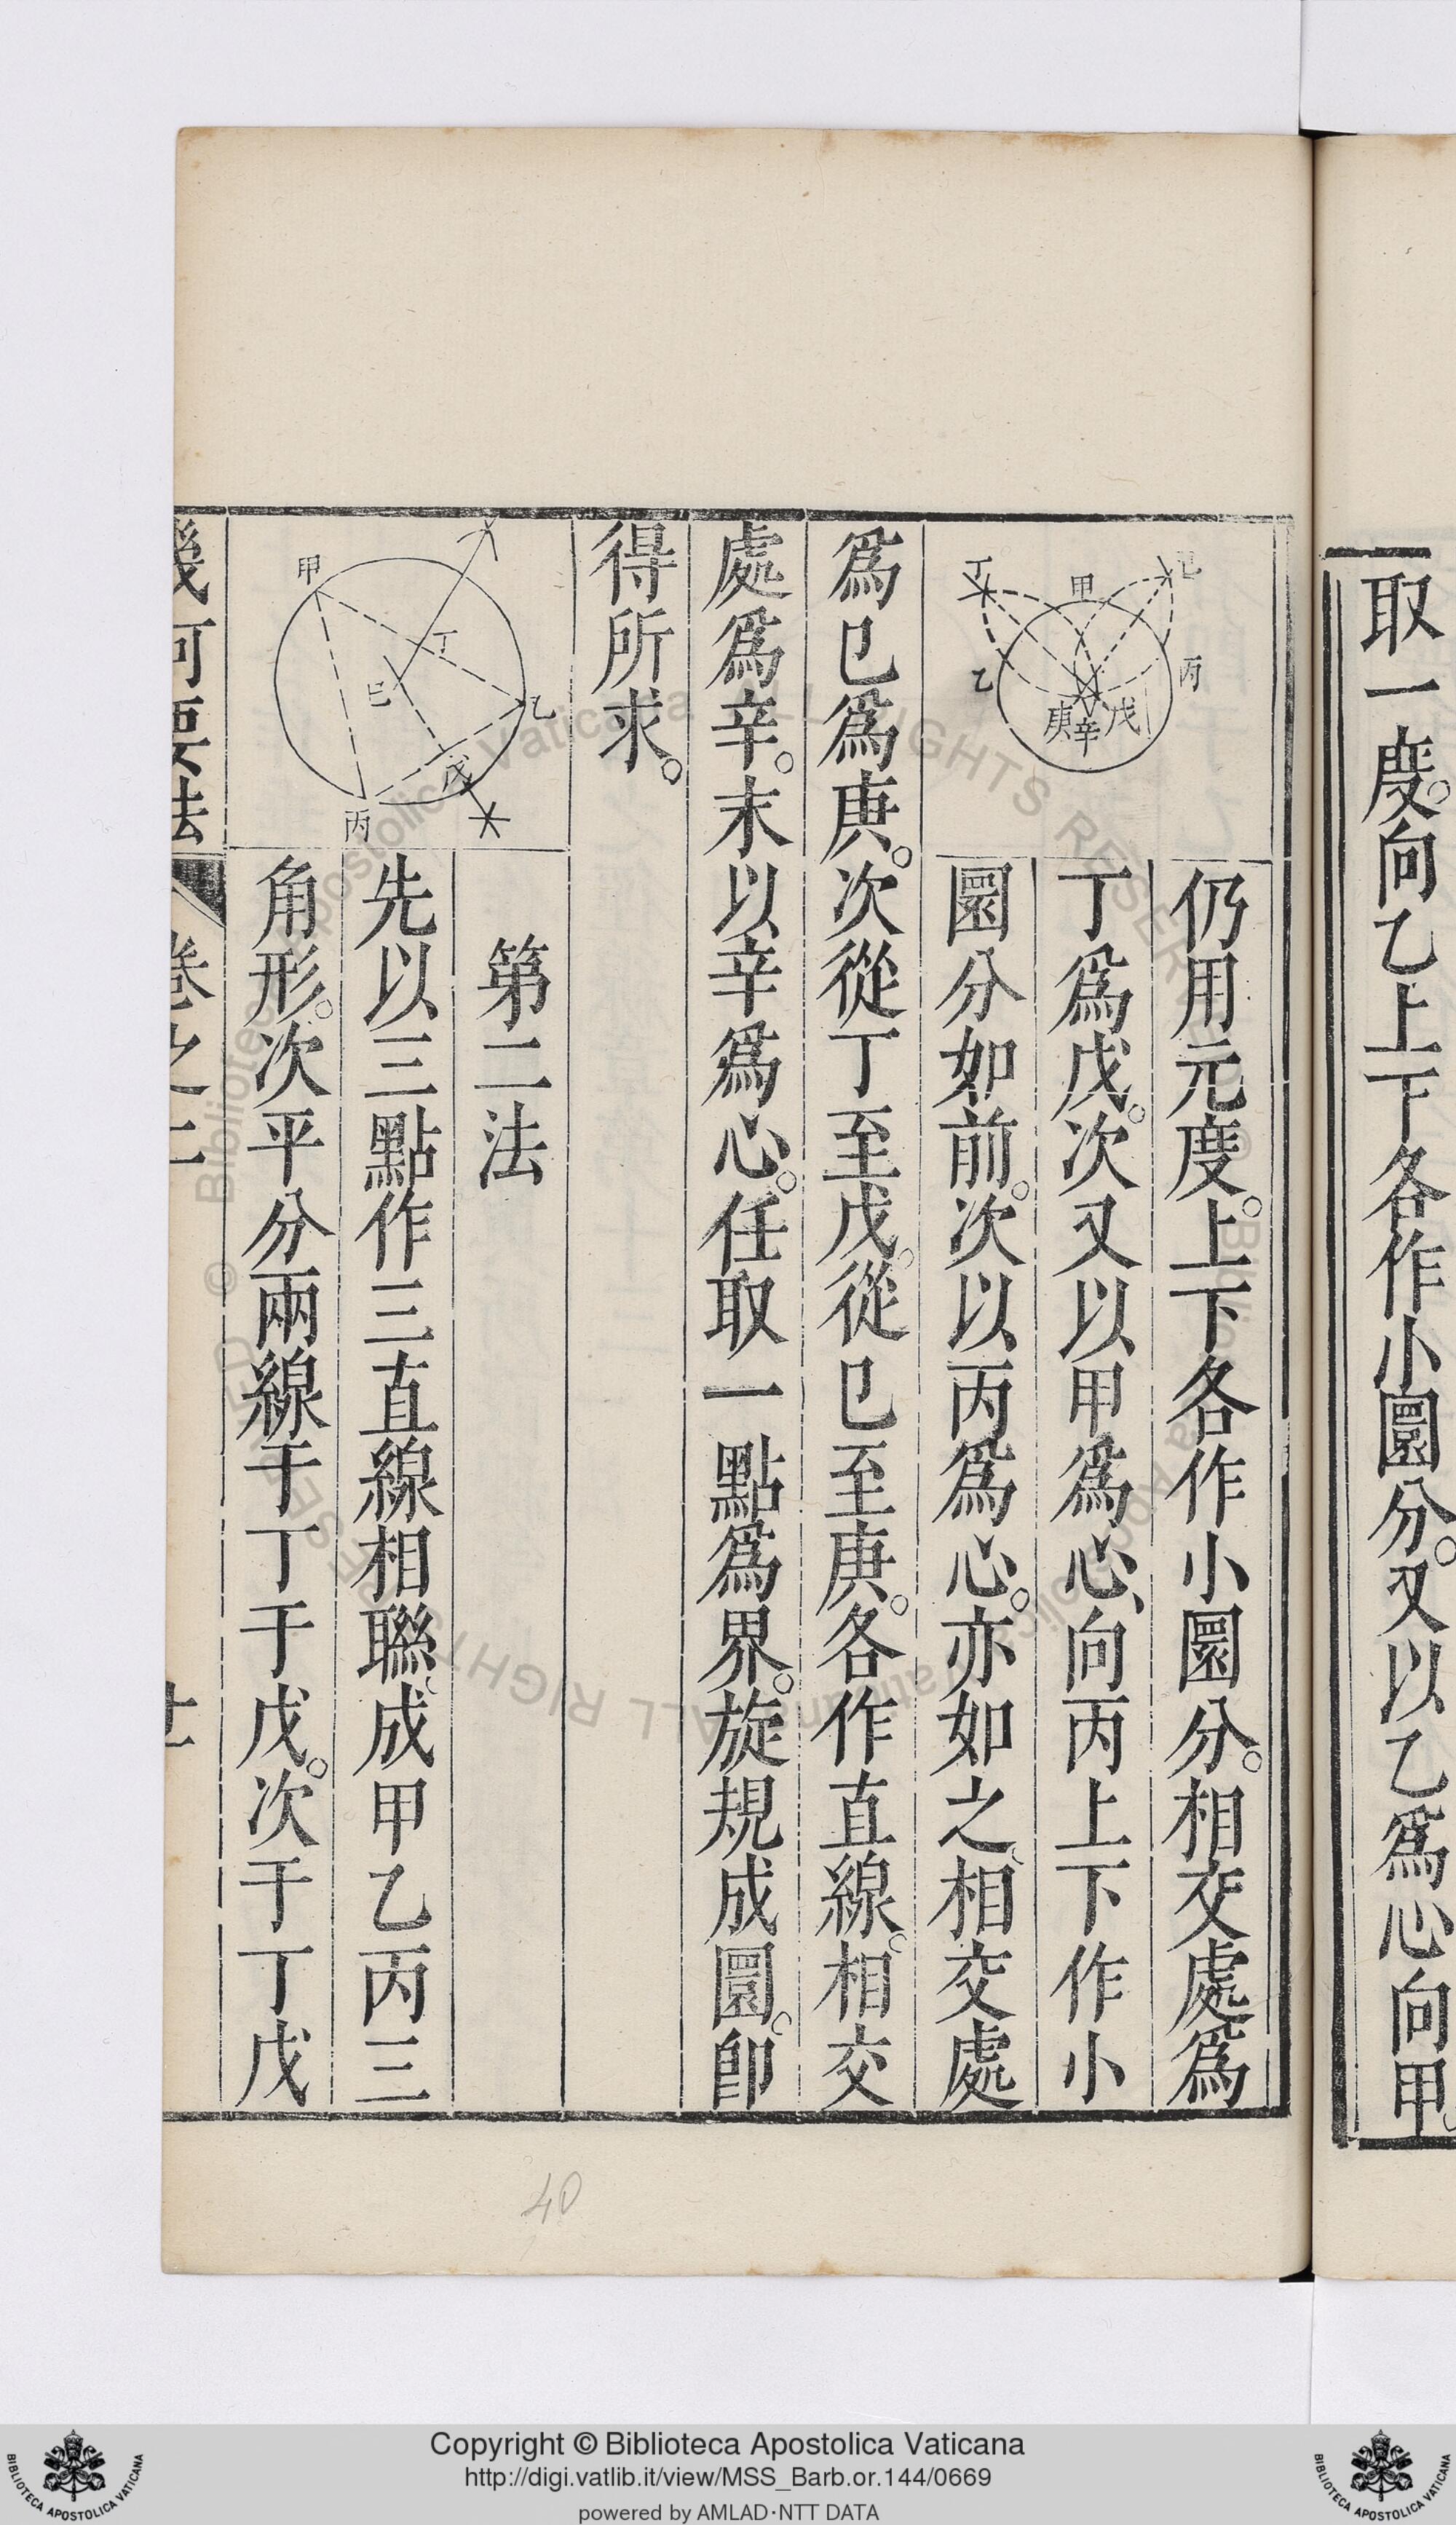 取一度。向乙上下各作小圜分。又以乙爲心向甲。
仍用元度。上下各作小圜分。相交處爲
丁爲戊。次又以甲爲心、向丙上下作小
圜分如前。次以丙爲心。亦如之。相交處
爲已爲庚。次從丁至戊。從已至庚。各作直線。相交
處爲辛。末以辛爲心。任取一點爲界。旋規成圜。卽
得所求。
第二法
先以三點作三直線相聯。成甲乙丙三
角形。次平分兩線于丁于戊。次于丁戊
幾何要法
卷之二
丁
甲
已
乙
丙
庚
辛
戊
甲
丁
已
乙
戊
丙
40
Copyright © Biblioteca Apostolica Vaticana
http://digi.vatlib.it/view/MSS_Barb.or.144/0669
powered by AMLAD·NTT DATA
BIBLIOTECA APOSTOLICA VATICANA
BIBLIOTECA APOSTOLICA VATICANA